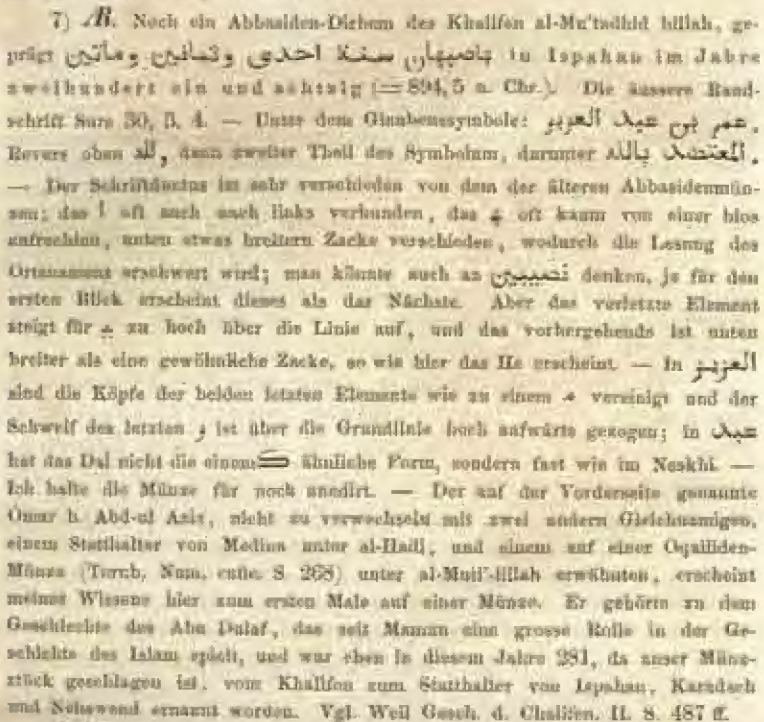 7) Æ. Noch ein Abbasiden-Dirhem des Khalifen al-Mu'tadhid billah, ge-
prägt باصبهان سنة احدى وثمانين ومأتين in Ispahan im Jahre
zweihundert ein und achtzig (=894,5 n. Chr.). Die äussere Rand-
schrift Sure 30, 3, 4. — Unter dem Glaubenssymbole: عمر بن عبد العزيز.
Revers oben لله, dann zweiter Theil des Symbolum, darunter المعتضد بالله.
— Der Schriftductus ist sehr verschieden von dem der älteren Abbasidenmün-
zen; das ا oft auch nach links verbunden, das ه oft kaum von einer blos
aufrechten, unten etwas breitern Zacke verschieden, wodurch die Lesung des
Ortsnamens erschwert wird; man könnte auch an نصيبين denken, ja für den
ersten Blick erscheint dieses als das Nächste. Aber das vorletzte Element
steigt für ـيـ zu hoch über die Linie auf, und das vorhergehende ist unten
breiter als eine gewöhnliche Zacke, so wie hier das He erscheint. — In العزيز
sind die Köpfe der beiden letzten Elemente wie zu einem vereinigt und der
Schweif des letzten ist über die Grundlinie hoch aufwärts gezogen; in عبد
hat das Dal nicht die einem ähnliche Form, sondern fast wie im Neskhi. —
Ich halte die Münze für noch unedirt. — Der auf der Vorderseite genannte
Omar b. Abd-ul Aziz, nicht zu verwechseln mit zwei andern Gleichnamigen,
einem Statthalter von Medina unter al-Hadi, und einem auf einer Oqailiden-
Münze (Tornb. Num. cufic. S. 268) unter al-Muti'-lillah erwähnten, erscheint
meines Wissens hier zum ersten Male auf einer Münze. Er gehörte zu dem
Geschlechte des Abu Dulaf, das seit Mamun eine grosse Rolle in der Ge-
schichte des Islam spielt, und war eben in diesem Jahre 281, da unser Münz-
stück geschlagen ist, vom Khalifen zum Statthalter von Ispahan, Karadsch
und Nehawend ernannt worden. Vgl. Weil Gesch. d. Chalifen. II. S. 487 ff.